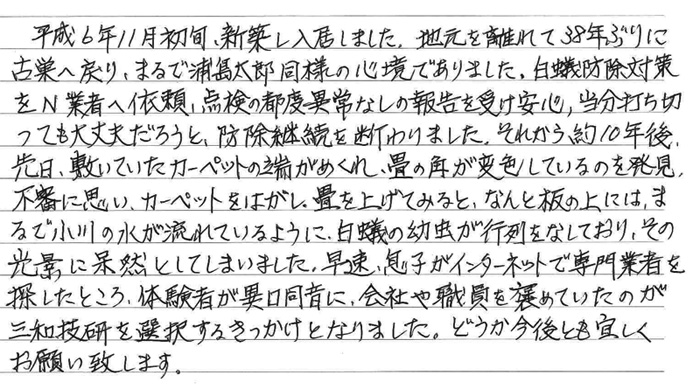 平成6年11月初旬、新築し入居しました。地元を離れて38年ぶりに
古巣へ戻り、まるで浦島太郎同様の心境でありました。白蟻防除対策
をN業者へ依頼、点検の都度異常なしの報告を受け安心、当分打ち切
っても大丈夫だろうと、防除継続を断わりました。それから約10年後、
先日、敷いていたカーペットの端がめくれ、畳の角が変色しているのを発見、
不審に思い、カーペットをはがし、畳を上げてみると、なんと板の上には、ま
るで小川の水が流れているように、白蟻の幼虫が行列をなしており、その
光景に呆然としてしまいました。早速、息子がインターネットで専門業者を
探したところ、体験者が異口同音に、会社や職員を褒めていたのが
三和技研を選択するきっかけとなりました。どうか今後とも宜しく
お願い致します。